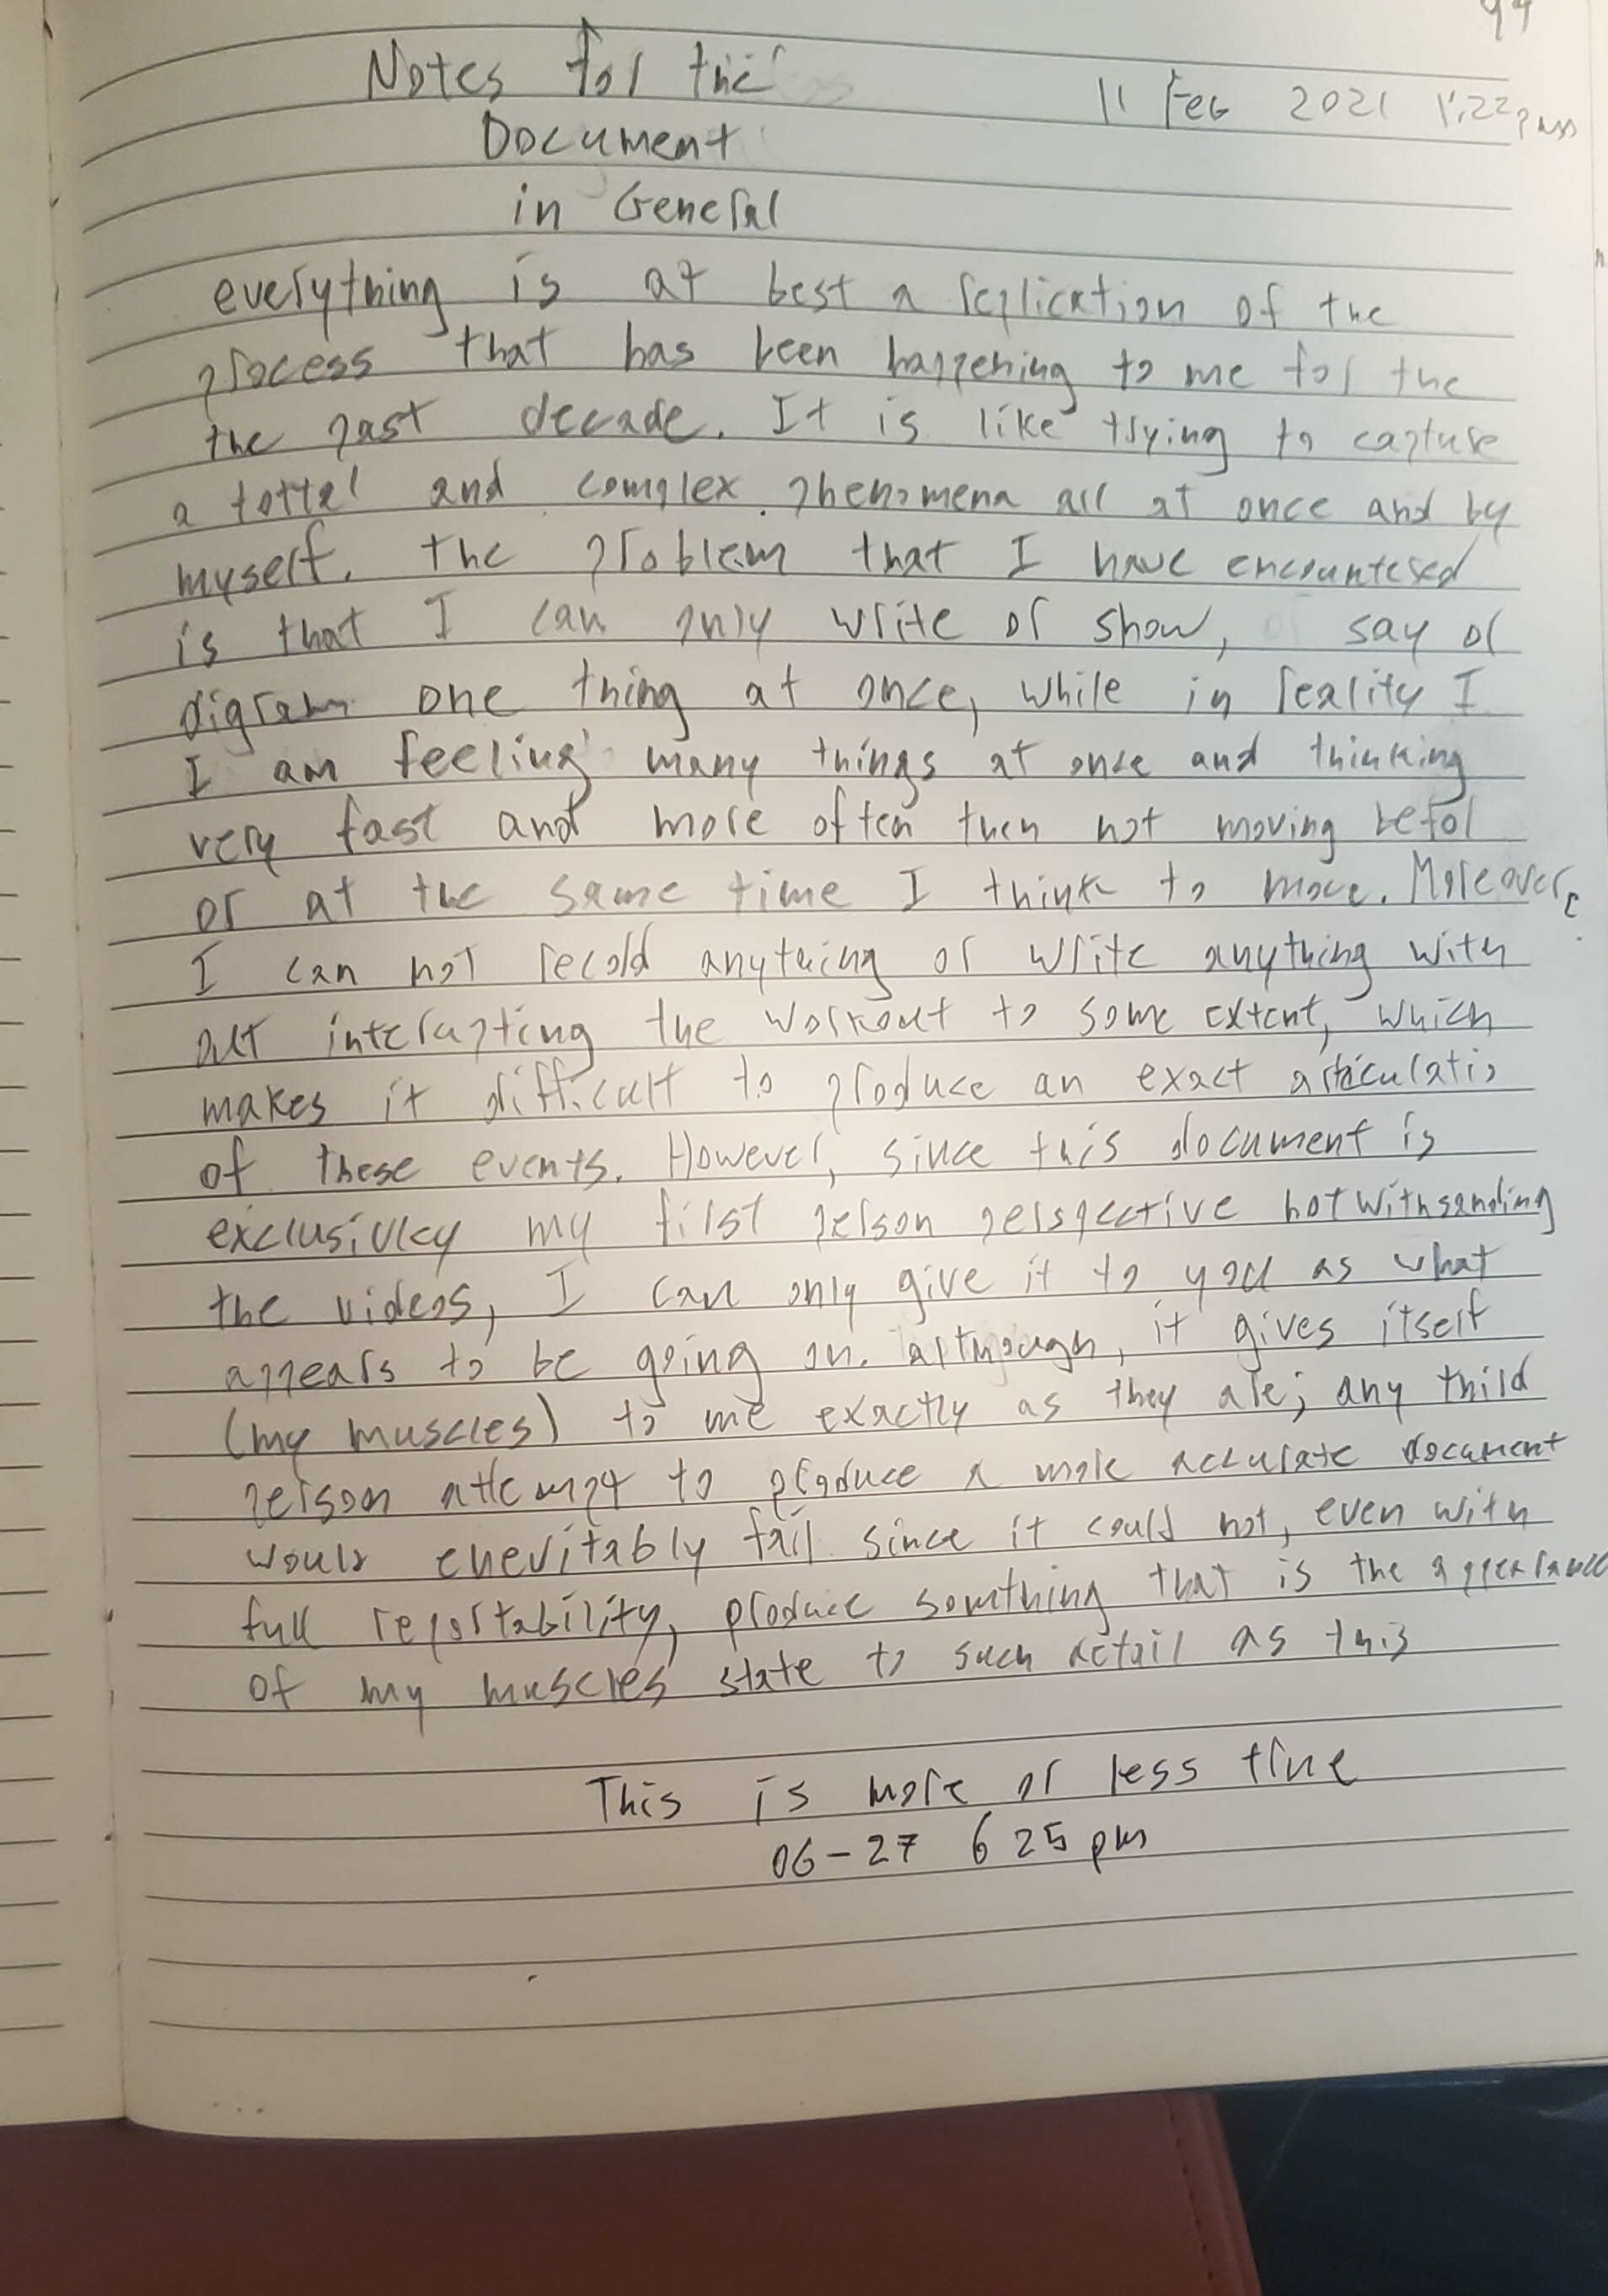 Notes for the
11 Feb 2021 1:22pm
Document
in General
everything is at best a replication of the
process that has been happening to me for the
the past decade. It is like trying to capture
a tottal and complex phenomena all at once and by
myself. the problem that I have encountered
is that I can only write or show, or say or
digram one thing at once, while in reality I
I am feeling many things at once and thinking
very fast and more often then not moving befor
or at the same time I think to move. Moreover,
I can not record anything or write anything with
out interupting the workout to some extent, which
makes it difficult to produce an exact articulatio
of these events. However, since this document is
exclusivley my first person perspective notwithsanding
the videos, I can only give it to you as what
appears to be going on. although, it gives itself
(my muscles) to me exactly as they are; any third
person attempt to produce a more accurate document
would enevitably fail since it could not, even with
full reportability, produce somthing that is the appearance
of my muscles state to such detail as this
This is more or less true
06-27 6 25 pm